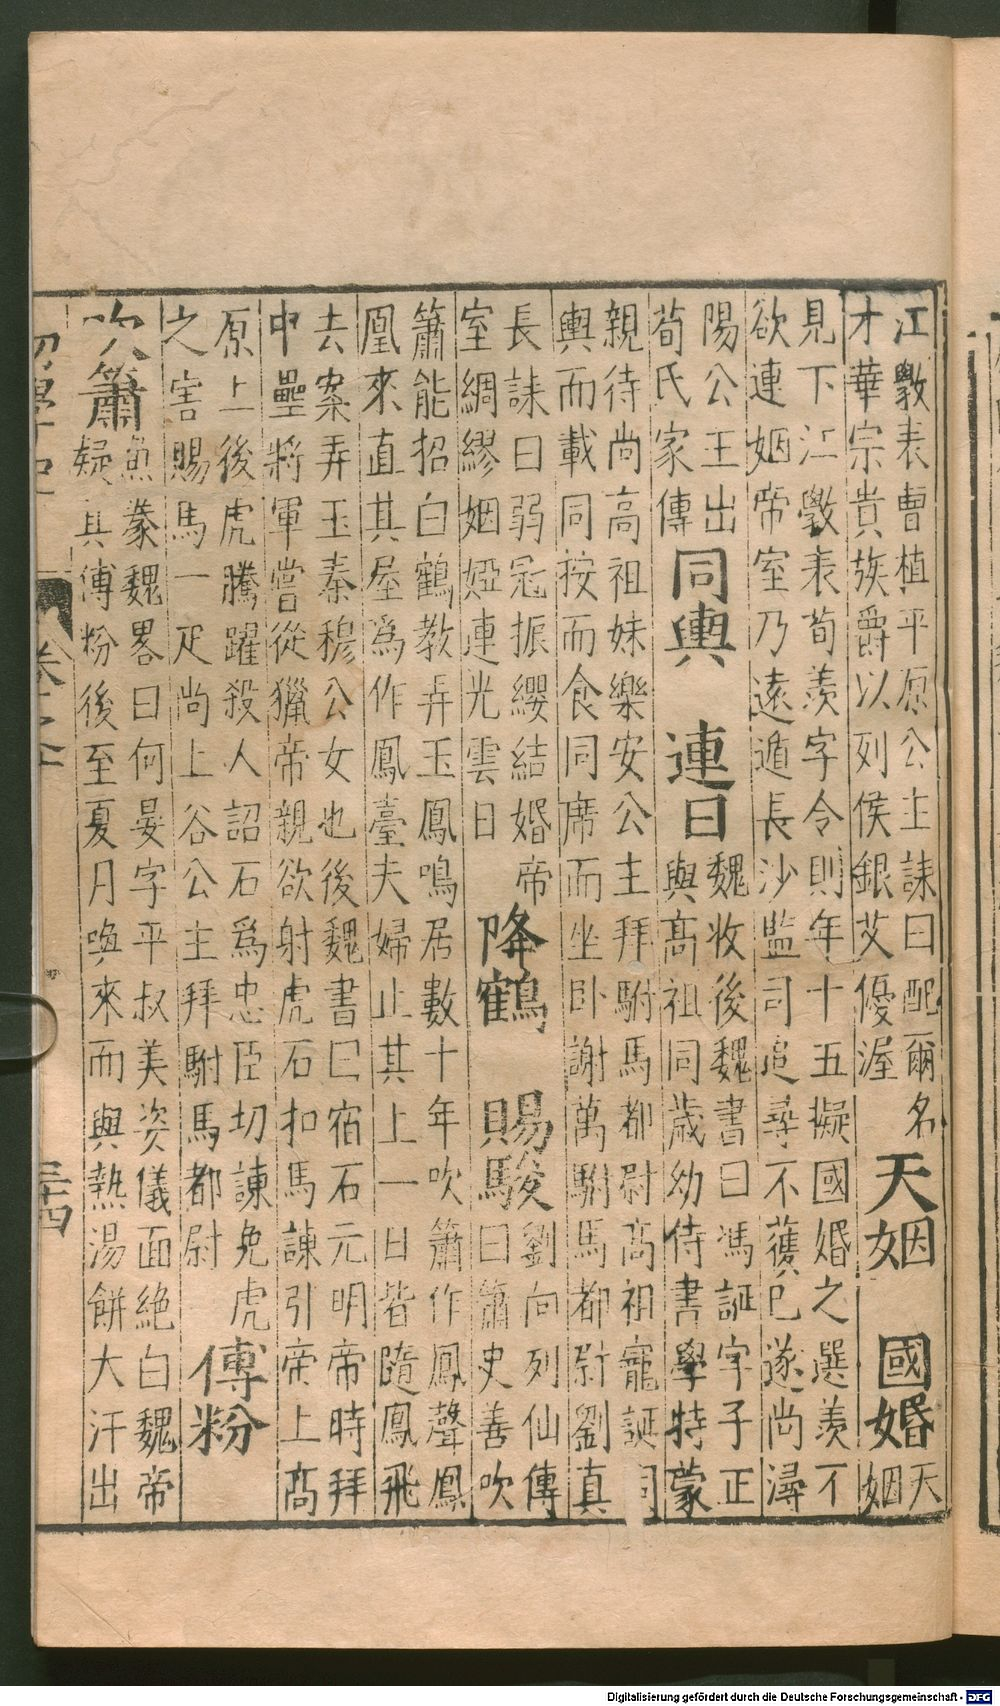 江斆表曹植平原公主誄曰配爾名
才華宗貴族爵以列侯銀艾優渥
天姻 國婚
天
姻
見下江斆表荀羨字令則年十五擬國婚之選羨不
欲連姻帝室乃遠遁長沙監司追尋不獲已遂尚潯
陽公王出
荀氏家傳
同輿 連日
魏收後魏書曰馮誕字子正
與高祖同歲幼侍書學特蒙
親待尚高祖妹樂安公主拜駙馬都尉高祖寵誕同
輿而載同按而食同席而坐卧謝萬駙馬都尉劉真
長誄曰弱冠振纓結婚帝
室綢繆姻婭連光雲日
降鶴 賜駿
劉向列仙傳
曰簫史善吹
簫能招白鶴教弄玉鳳鳴居數十年吹簫作鳳聲鳳
凰來直其屋爲作鳳臺夫婦止其上一日皆隨鳳飛
去案弄玉秦穆公女也後魏書曰宿石元明帝時拜
中壘將軍嘗從獵帝親欲射虎石扣馬諫引帝上高
原上後虎騰躍殺人詔石爲忠臣切諫免虎
之害賜馬一疋尚上谷公主拜駙馬都尉
傅粉
吹簫
魚豢魏畧曰何晏字平叔美姿儀面絶白魏帝
疑其傅粉後至夏月喚來而與熱湯餅大汗出
初學記
Digitalisierung gefördert durch die Deutsche Forschungsgemeinschaft - DFG